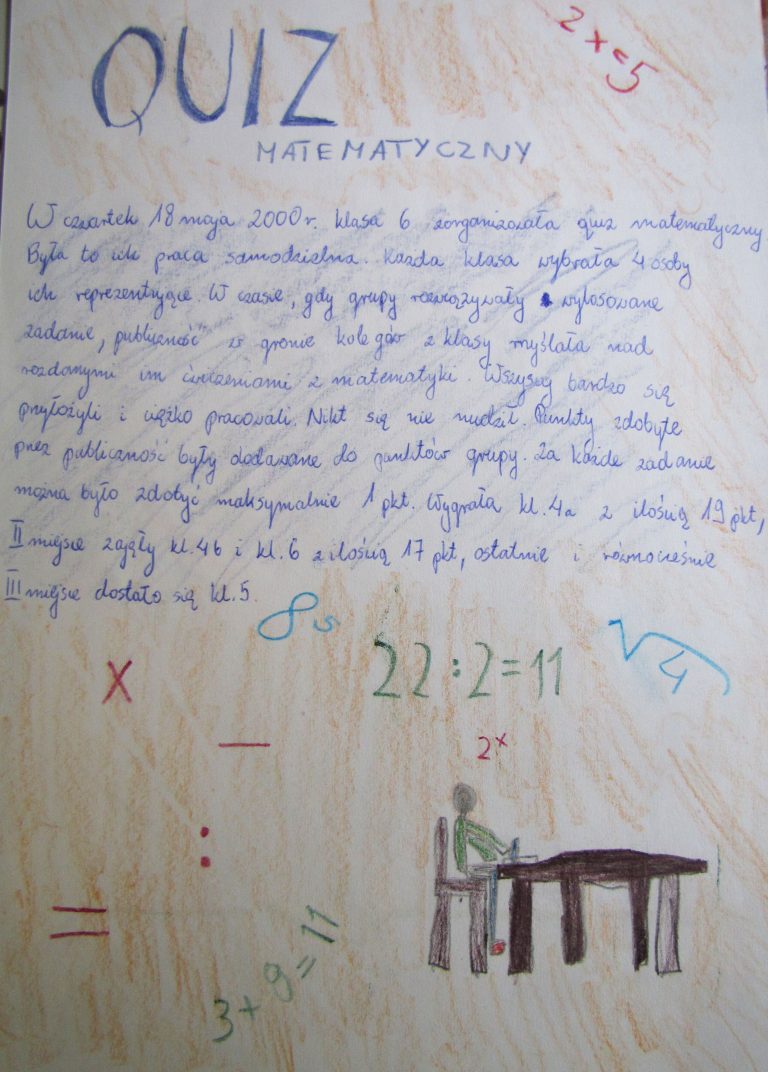 QUIZ
2x=5
MATEMATYCZNY
W czwartek 18 maja 2000r. klasa 6 zorganizowała quiz matematyczny
Była to ich praca samodzielna. Każda klasa wybrała 4 osoby
ich reprezentujące. W czasie, gdy grupy rozwiązywały wylosowane
zadanie, publiczność w gronie kolegów z klasy myślała nad
rozdanymi im ćwiczeniami z matematyki. Wszyscy bardzo się
przyłożyli i ciężko pracowali. Nikt się nie nudził. Punkty zdobyte
przez publiczność były dodawane do punktów grupy. Za każde zadanie
można było zdobyć maksymalnie 1 pkt. Wygrała kl.4a z ilością 19 pkt,
II miejsce zajęły kl.4b i kl.6 z ilością 17 pkt, ostatnie i równocześnie
III miejsce dostało się kl.5.
8
22:2=11
√4
x
—
2ˣ
:
=
3+9=11